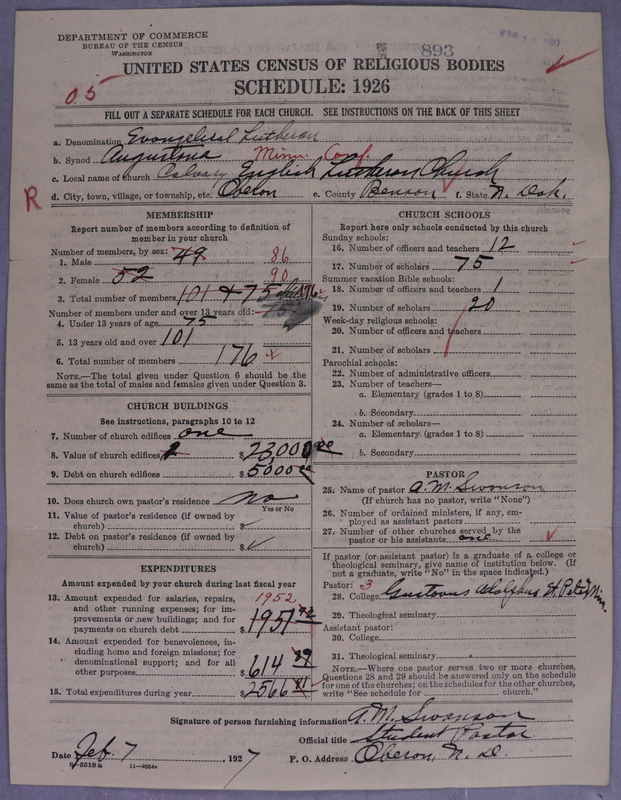 DEPARTMENT OF COMMERCE
BUREAU OF THE CENSUS
WASHINGTON
893
UNITED STATES CENSUS OF RELIGIOUS BODIES
SCHEDULE: 1926
05
FILL OUT A SEPARATE SCHEDULE FOR EACH CHURCH. SEE INSTRUCTIONS ON THE BACK OF THIS SHEET
a. Denomination Evangelical Lutheran
b. Synod Augustana Minn. Conf.
c. Local name of church Calvary English Lutheran Church
R d. City, town, village, or township, etc. Oberon e. County Benson f. State N. Dak.
MEMBERSHIP
Report number of members according to definition of
member in your church
Number of members, by sex:
1. Male 49 86
2. Female 52 90
3. Total number of members 101 + 75 176
Number of members under and over 13 years old:
4. Under 13 years of age 75
5. 13 years old and over 101
6. Total number of members 176
NOTE.—The total given under Question 6 should be
same as the total of males and females given under Question 3.
CHURCH BUILDINGS
See instructions, paragraphs 10 to 12
7. Number of church edifices one
8. Value of church edifices $ 23000 00
9. Debt on church edifices $ 5000 00
10. Does church own pastor's residence No
Yes or No
11. Value of pastor's residence (if owned by
church) $
12. Debt on pastor's residence (if owned by
church) $
EXPENDITURES
Amount expended by your church during last fiscal year
13. Amount expended for salaries, repairs, 1952
and other running expenses; for im-
provements or new buildings; and for
payments on church debt $ 1951 92
14. Amount expended for benevolences, in-
cluding home and foreign missions; for
denominational support; and for all
other purposes $ 614 89
15. Total expenditures during year $ 2566 81
CHURCH SCHOOLS
Report here only schools conducted by this church
Sunday schools:
16. Number of officers and teachers 12
17. Number of scholars 75
Summer vacation Bible schools:
18. Number of officers and teachers 1
19. Number of scholars 20
Week-day religious schools:
20. Number of officers and teachers
21. Number of scholars
Parochial schools:
22. Number of administrative officers
23. Number of teachers—
a. Elementary (grades 1 to 8)
b. Secondary
24. Number of scholars—
a. Elementary (grades 1 to 8)
b. Secondary
PASTOR
25. Name of pastor A. M. Swanson
(If church has no pastor, write "None")
26. Number of ordained ministers, if any, em-
ployed as assistant pastors
27. Number of other churches served by the
pastor or his assistants one
If pastor (or assistant pastor) is a graduate of a college or
theological seminary, give name of institution below. (If
not a graduate, write "No" in the space indicated.)
Pastor: 3
28. College Gustavus Adolphus St. Peter Minn.
29. Theological seminary
Assistant pastor:
30. College
31. Theological seminary
NOTE.—Where one pastor serves two or more churches,
Questions 28 and 29 should be answered only on the schedule
for one of the churches; on the schedules for the other churches,
write "See schedule for church."
Signature of person furnishing information A. M. Swanson
Official title Student Pastor
Date Feb. 7, 1927 P. O. Address Oberon, N. D.
8-5518a 11-9034